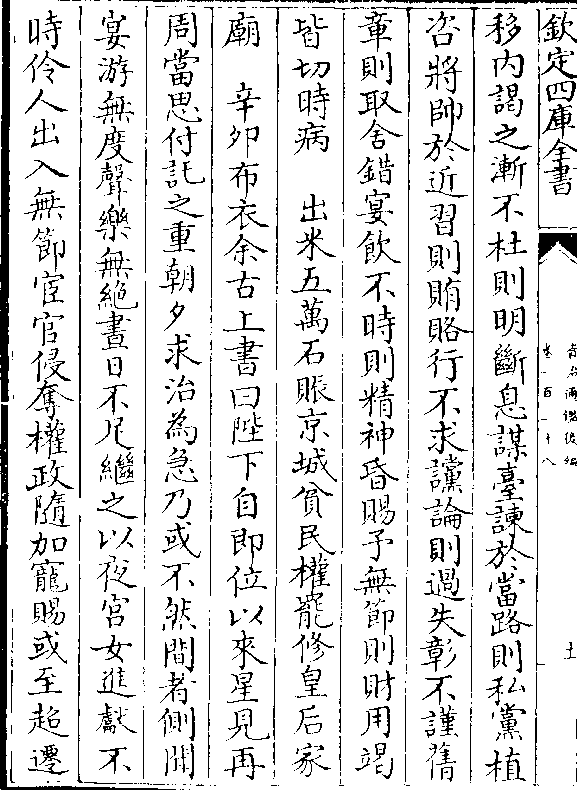 欽定四庫全書
資治通鑑後編
卷一百二十八
十一
移內謁之漸不杜則明斷息謀臺諫於當路則私黨植
咨將帥於近習則賄賂行不求讜論則過失彰不謹舊
章則取舍錯宴飲不時則精神昏賜予無節則財用竭
皆切時病　出米五萬石賑京城貧民權罷修皇后家
廟　辛卯布衣余古上書曰陛下自即位以來星見再
周當思付託之重朝夕求治為急乃或不然間者側聞
宴游無度聲樂無絶晝日不足繼之以夜宮女進獻不
時伶人出入無節宦官侵奪權政隨加寵賜或至超遷